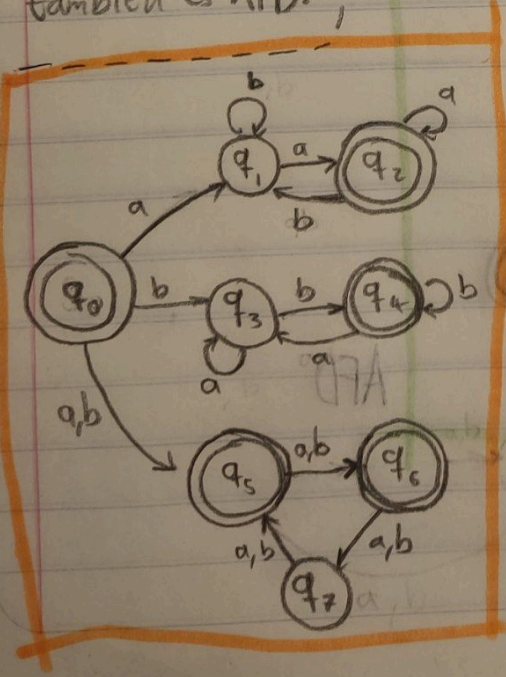 también es AFD.
b
a
q1 a q2
a
b
q0 b q3 b q4 b
a
a
AFD
a,b
q5 a,b q6
a,b a,b
q7